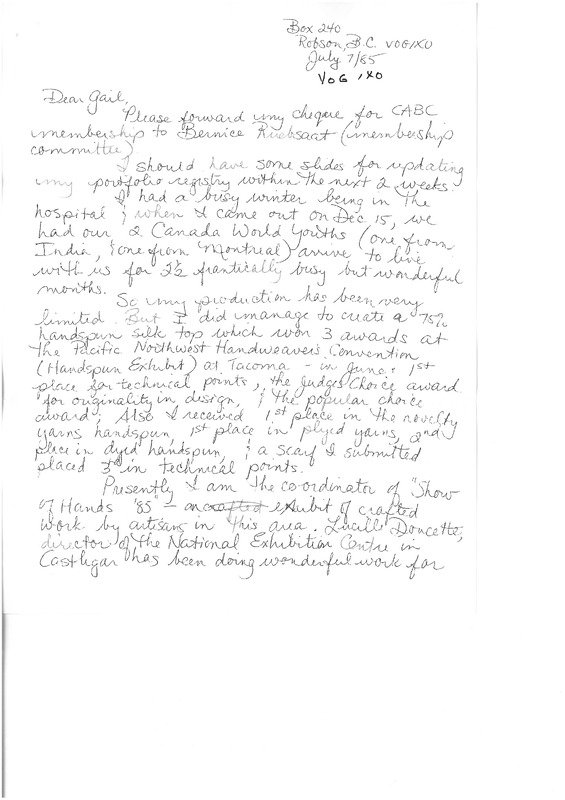 Box 240
Robson, B.C. V0G1X0
July 7/85
V0G 1X0
Dear Gail,
Please forward my cheque for CABC
membership to Bernice (membership
committee)
I should have some slides for updating
my portfolio registry within the next 2 weeks.
I had a busy winter being in the
hospital & when I came out on Dec 15, we
had our 2 Canada World Youths (one from
India, & one from Montreal) arrive to live
with us for 2½ frantically busy but wonderful
months.
So my production has been very
limited. But I did manage to create a 75%
handspun silk top which won 3 awards at
the Pacific Northwest Handweavers Convention
(Handspun Exhibit) at Tacoma - in June: 1st
place for technical points, the Judges Choice award
for originality in design, & the popular choice
award; Also I received 1st place in the novelty
yarns handspun, 1st place in plyed yarns, 2nd
place in dyed handspun, & a scarf I submitted
placed 3rd in technical points.
Presently I am the co-ordinator of "Show
of Hands '85" - an exhibit of crafted
work by artisans in this area. Lucille Doucette,
director of the National Exhibition Centre in
Castlegar has been doing wonderful work for